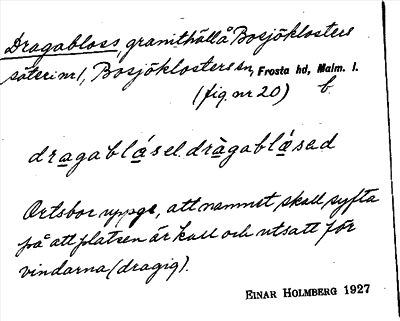 Dragabloss, granithäll å Bosjöklosters
säteri nr 1, Bosjöklosters sn, Frosta hd, Malm. l.
(fig. nr 20) b.
dragablásel. dràgablásad
Ortsbor uppge, att namnet skall syfta
på att platsen är kall och utsatt för
vindarna (dragig).
EINAR HOLMBERG 1927